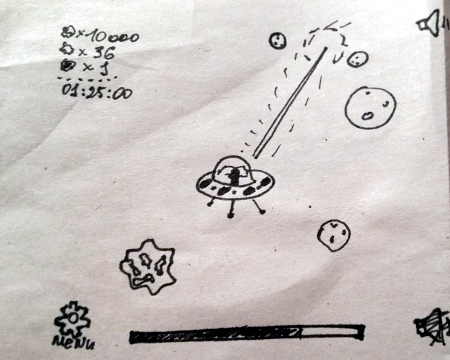 x 10000
x 36
x 1
01:25:00
MENU